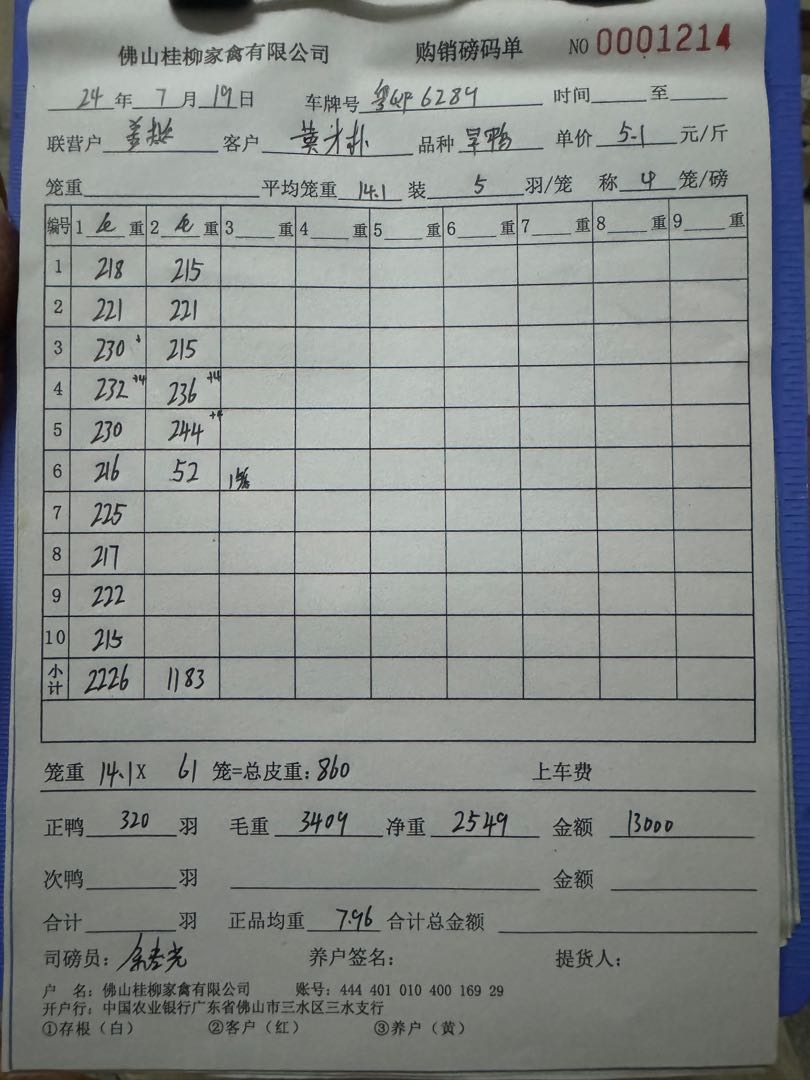 佛山桂柳家禽有限公司 购销磅码单 NO 0001214
24 年 7 月 19 日 车牌号 6289 时间 至
联营户 客户 品种 旱鸭 单价 5.1 元/斤
笼重 平均笼重 14.1 装 5 羽/笼 称 4 笼/磅
编号 1 毛 重 2 毛 重 3 重 4 重 5 重 6 重 7 重 8 重 9 重
1 218 215
2 221 221
3 230 + 215
4 232 +4 236 +4
5 230 244 +4
6 216 52 1笼
7 225
8 217
9 222
10 215
小计 2226 1183
笼重 14.1 X 61 笼=总皮重: 860 上车费
正鸭 320 羽 毛重 3409 净重 2549 金额 13000
次鸭 羽 金额
合计 羽 正品均重 7.96 合计总金额
司磅员: 养户签名: 提货人:
户 名: 佛山桂柳家禽有限公司 账号: 444 401 010 400 169 29
开户行: 中国农业银行广东省佛山市三水区三水支行
①存根(白) ②客户(红) ③养户(黄)